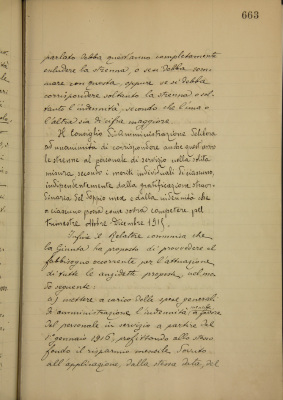 663
parlato debba quest'anno completamente
escludere la strenna, o sen debba som-
mare con questa, oppure se si debba
corrispondere soltanto la strenna o sol-
tanto l'indennità, secondo che l'una o
l'altra sia di cifra maggiore.
Il Consiglio d'Amministrazione delibera
ad unanimità di corrispondere anche quest'anno
le strenne al personale di servizio nella solita
misura secondo i meriti individuali di ciascuno,
indipendentemente dalla gratificazione straor-
dinaria del doppio mese e dalla indennità che
a ciascuno possa come sopra competere pel
trimestre Ottobre-Dicembre 1915.
Infine il Relatore comunica che
la Giunta ha proposto di provvedere al
fabbisogno occorrente per l'attuazione
di tutte le anzidette proposte, nel mo-
do seguente:
a) mettere a carico delle spese generali
d'amministrazione l'indennità a favore
del personale in servizio a partire dal
1° gennaio 1916, profittando allo stesso
fondo il risparmio mensile dovuto
all'applicazione, dalla stessa data, del